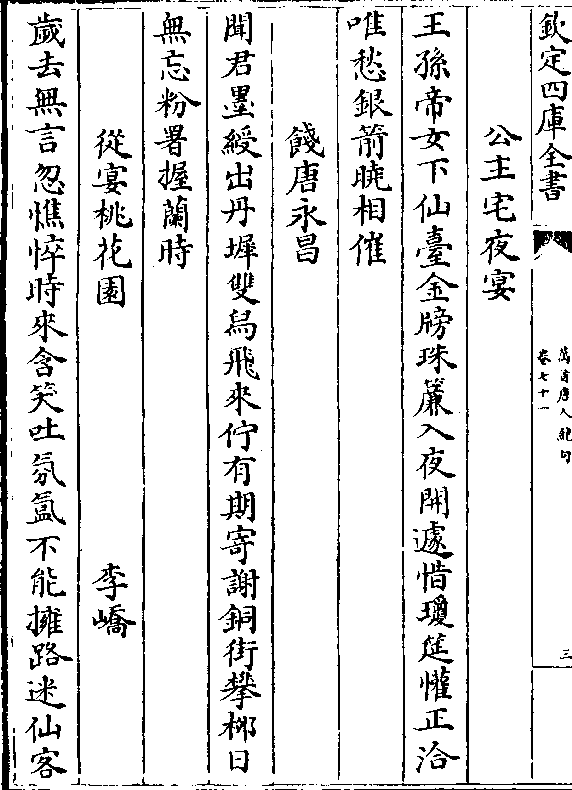 欽定四庫全書
萬首唐人絶句
卷七十一
三
公主宅夜宴
王孫帝女下仙臺金牓珠簾入夜開遽惜瓊筵懽正洽
唯愁銀箭曉相催
餞唐永昌
聞君墨綬出丹墀雙舄飛來佇有期寄謝銅街攀桞日
無忘粉署握蘭時
從宴桃花園　李嶠
歲去無言忽憔悴時來含笑吐氛氲不能擁路迷仙客